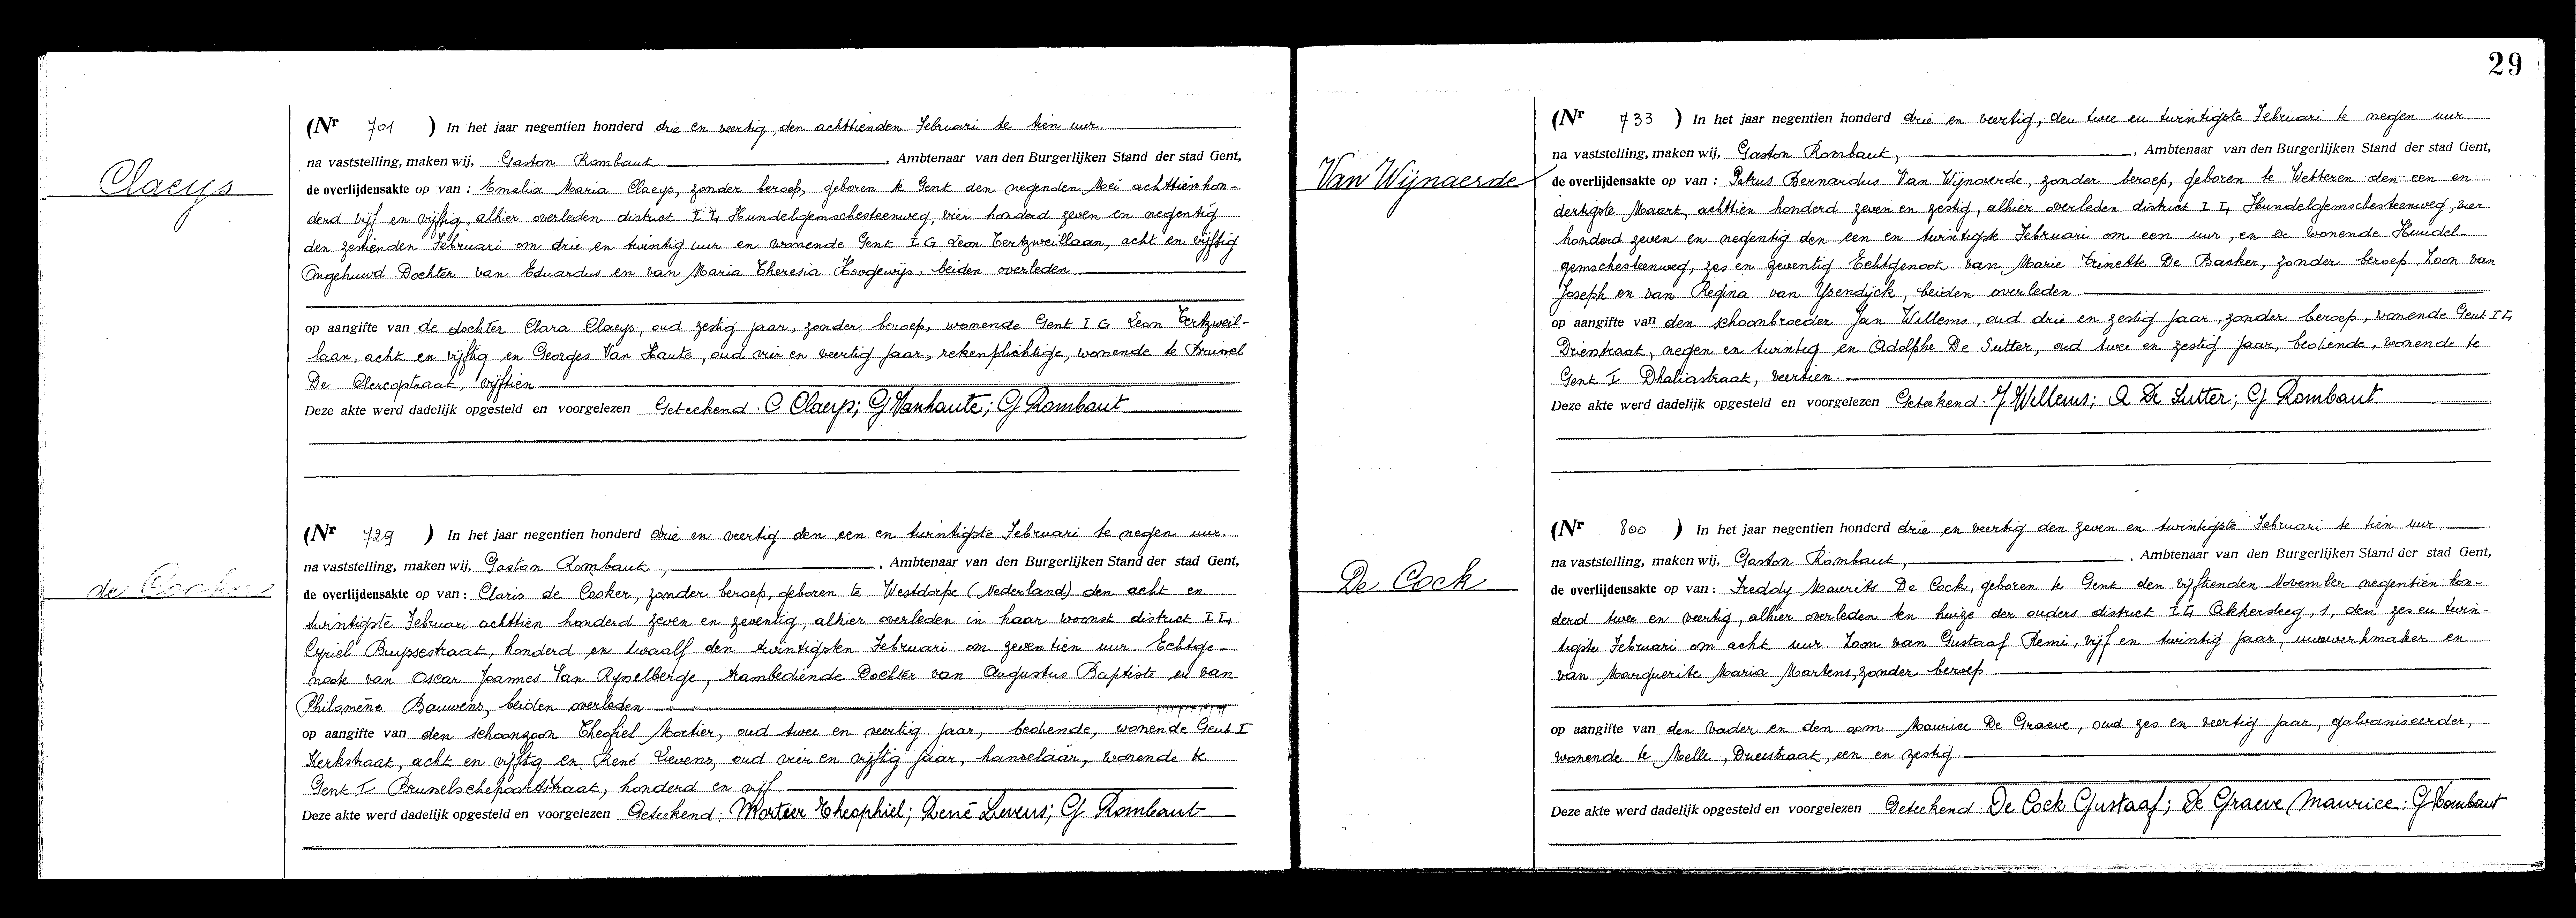 Claeys
(Nr 701 ) In het jaar negentien honderd drie en veertig, den achttienden Februari te tien uur.
na vaststelling, maken wij, Gaston Rombaut , Ambtenaar van den Burgerlijken Stand der stad Gent,
de overlijdensakte op van : Emelia Maria Claeys, zonder beroep, geboren te Gent den negenden Mei achttienhon-
derd vijf en vijftig, alhier overleden district I L, Hundelgemschesteenweg, vier honderd zeven en negentig
den zestienden Februari om drie en twintig uur en wonende Gent I G Leon Tertzweillaan, acht en vijftig
Ongehuwd Dochter van Eduardus en van Maria Theresia Hoogewijs, beiden overleden.
op aangifte van de dochter Clara Claeys, oud zestig jaar, zonder beroep, wonende Gent I G Leon Tertzweil-
laan, acht en vijftig en Georges Van Haute, oud vier en veertig jaar, rekenplichtige, wonende te Brussel
De Clercqstraat, vijftien
Deze akte werd dadelijk opgesteld en voorgelezen Geteekend : C Claeys; G Vanhaute; G Rombaut
de Cooker
(Nr 729 ) In het jaar negentien honderd drie en veertig den een en twintigste Februari te negen uur.
na vaststelling, maken wij, Gaston Rombaut, , Ambtenaar van den Burgerlijken Stand der stad Gent,
de overlijdensakte op van : Claris de Cooker, zonder beroep, geboren te Westdorpe (Nederland) den acht en
twintigste Februari achttien honderd zeven en zeventig, alhier overleden in haar woonst district I L,
Cyriel Buyssestraat, honderd en twaalf den twintigsten Februari om zeventien uur. Echtge-
noote van Oscar Joannes Van Rysselberge, trambediende Dochter van Augustus Baptiste en van
Philomène Bauwens, beiden overleden
op aangifte van den schoonzoon Theofiel Mortier, oud twee en veertig jaar, bediende, wonende Gent I
Kerkstraat, acht en vijftig en René Lievens, oud vier en vijftig jaar, handelaar, wonende te
Gent I Brusselschepoortstraat, honderd en vijf
Deze akte werd dadelijk opgesteld en voorgelezen Geteekend : Mortier Theophiel; René Lievens; G Rombaut
29
Van Wijnaerde
(Nr 733 ) In het jaar negentien honderd drie en veertig, den twee en twintigste Februari te negen uur
na vaststelling, maken wij, Gaston Rombaut, , Ambtenaar van den Burgerlijken Stand der stad Gent,
de overlijdensakte op van : Petrus Bernardus Van Wijnaerde, zonder beroep, geboren te Wetteren den een en
dertigste Maart, achttien honderd zeven en zestig, alhier overleden district I L, Hundelgemschesteenweg, vier
honderd zeven en negentig den een en twintigste Februari om een uur, en er wonende Hundel-
gemschesteenweg, zes en zeventig. Echtgenoot van Marie Trinette De Backer, zonder beroep. Zoon van
Joseph en van Regina van Ysendijck, beiden overleden
op aangifte van den schoonbroeder Jan Willems, oud drie en zestig jaar, zonder beroep, wonende Gent I L,
Driestraat, negen en twintig en Adolphe De Sutter, oud twee en zestig jaar, bediende, wonende te
Gent I Dhaliastraat, veertien.
Deze akte werd dadelijk opgesteld en voorgelezen Geteekend : J Willems; A De Sutter; G Rombaut.
De Cock
(Nr 800 ) In het jaar negentien honderd drie en veertig den zeven en twintigste Februari te tien uur.
na vaststelling, maken wij, Gaston Rombaut, , Ambtenaar van den Burgerlijken Stand der stad Gent,
de overlijdensakte op van : Freddy Maurits De Cock, geboren te Gent den vijftienden November negentien hon-
derd twee en veertig, alhier overleden ten huize der ouders district I L, Akkersteeg, 1, den zes en twin-
tigste Februari om acht uur. Zoon van Gustaaf Remi, vijf en twintig jaar, uurwerkmaker en
van Marguerite Maria Martens, zonder beroep
op aangifte van den vader en den oom Maurice De Graeve, oud zes en veertig jaar, galvaniseerder,
wonende te Melle, Driesstraat, een en zestig.
Deze akte werd dadelijk opgesteld en voorgelezen Geteekend : De Cock Gustaaf; De Graeve Maurice; G Rombaut